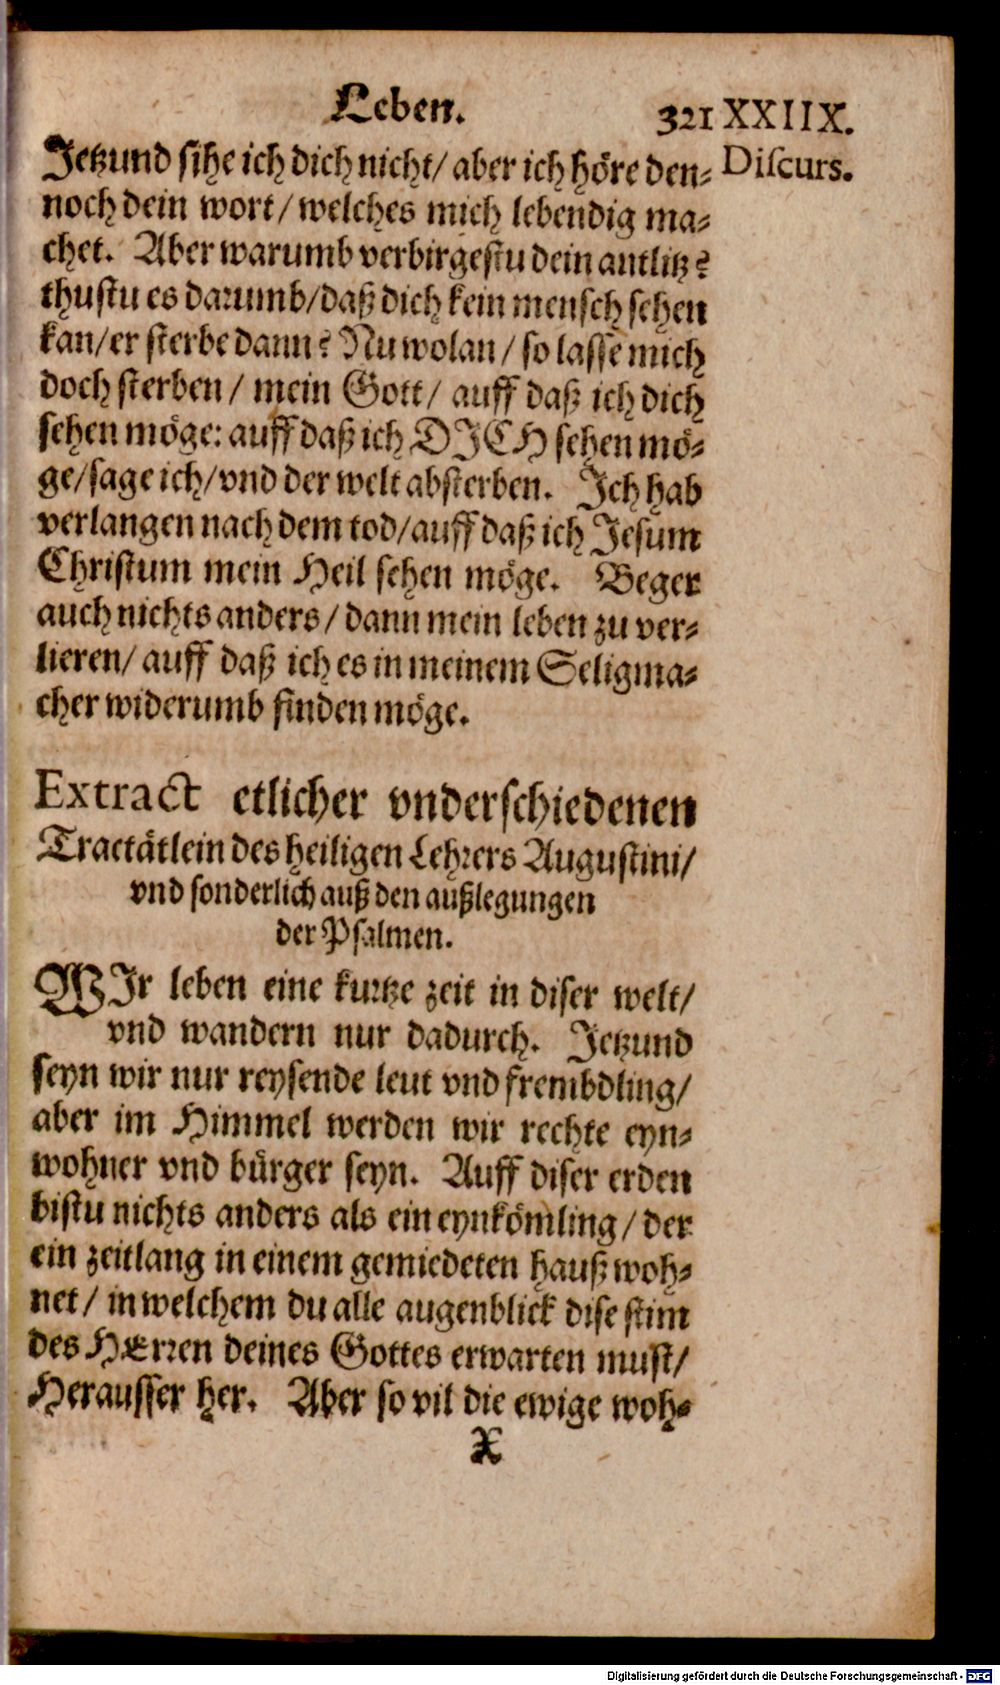 Leben. 321 XXIIX.
Jetzund sihe ich dich nicht/ aber ich höre den- Discurs.
noch dein wort/ welches mich lebendig ma-
chet. Aber warumb verbirgestu dein antlitz?
thustu es darumb/ daß dich kein mensch sehen
kan/ er sterbe dann? Nu wolan/ so lasse mich
doch sterben/ mein Gott/ auff daß ich dich
sehen möge: auff daß ich DJCH sehen mö-
ge/ sage ich/ vnd der welt absterben. Ich hab
verlangen nach dem tod/ auff daß ich Jesum
Christum mein Heil sehen möge. Beger
auch nichts anders/ dann mein leben zu ver-
lieren/ auff daß ich es in meinem Seligma-
cher widerumb finden möge.
Extract etlicher vnderschiedenen
Tractätlein des heiligen Lehrers Augustini/
vnd sonderlich auß den außlegungen
der Psalmen.
WJr leben eine kurtze zeit in diser welt/
vnd wandern nur dadurch. Jetzund
seyn wir nur reysende leut vnd frembdling/
aber im Himmel werden wir rechte eyn-
wohner vnd bürger seyn. Auff diser erden
bistu nichts anders als ein eynkömling/ der
ein zeitlang in einem gemiedeten hauß woh-
net/ in welchem du alle augenblick dise stim
des HErren deines Gottes erwarten must/
Herausser her. Aber so vil die ewige woh-
X
Digitalisierung gefördert durch die Deutsche Forschungsgemeinschaft - DFG